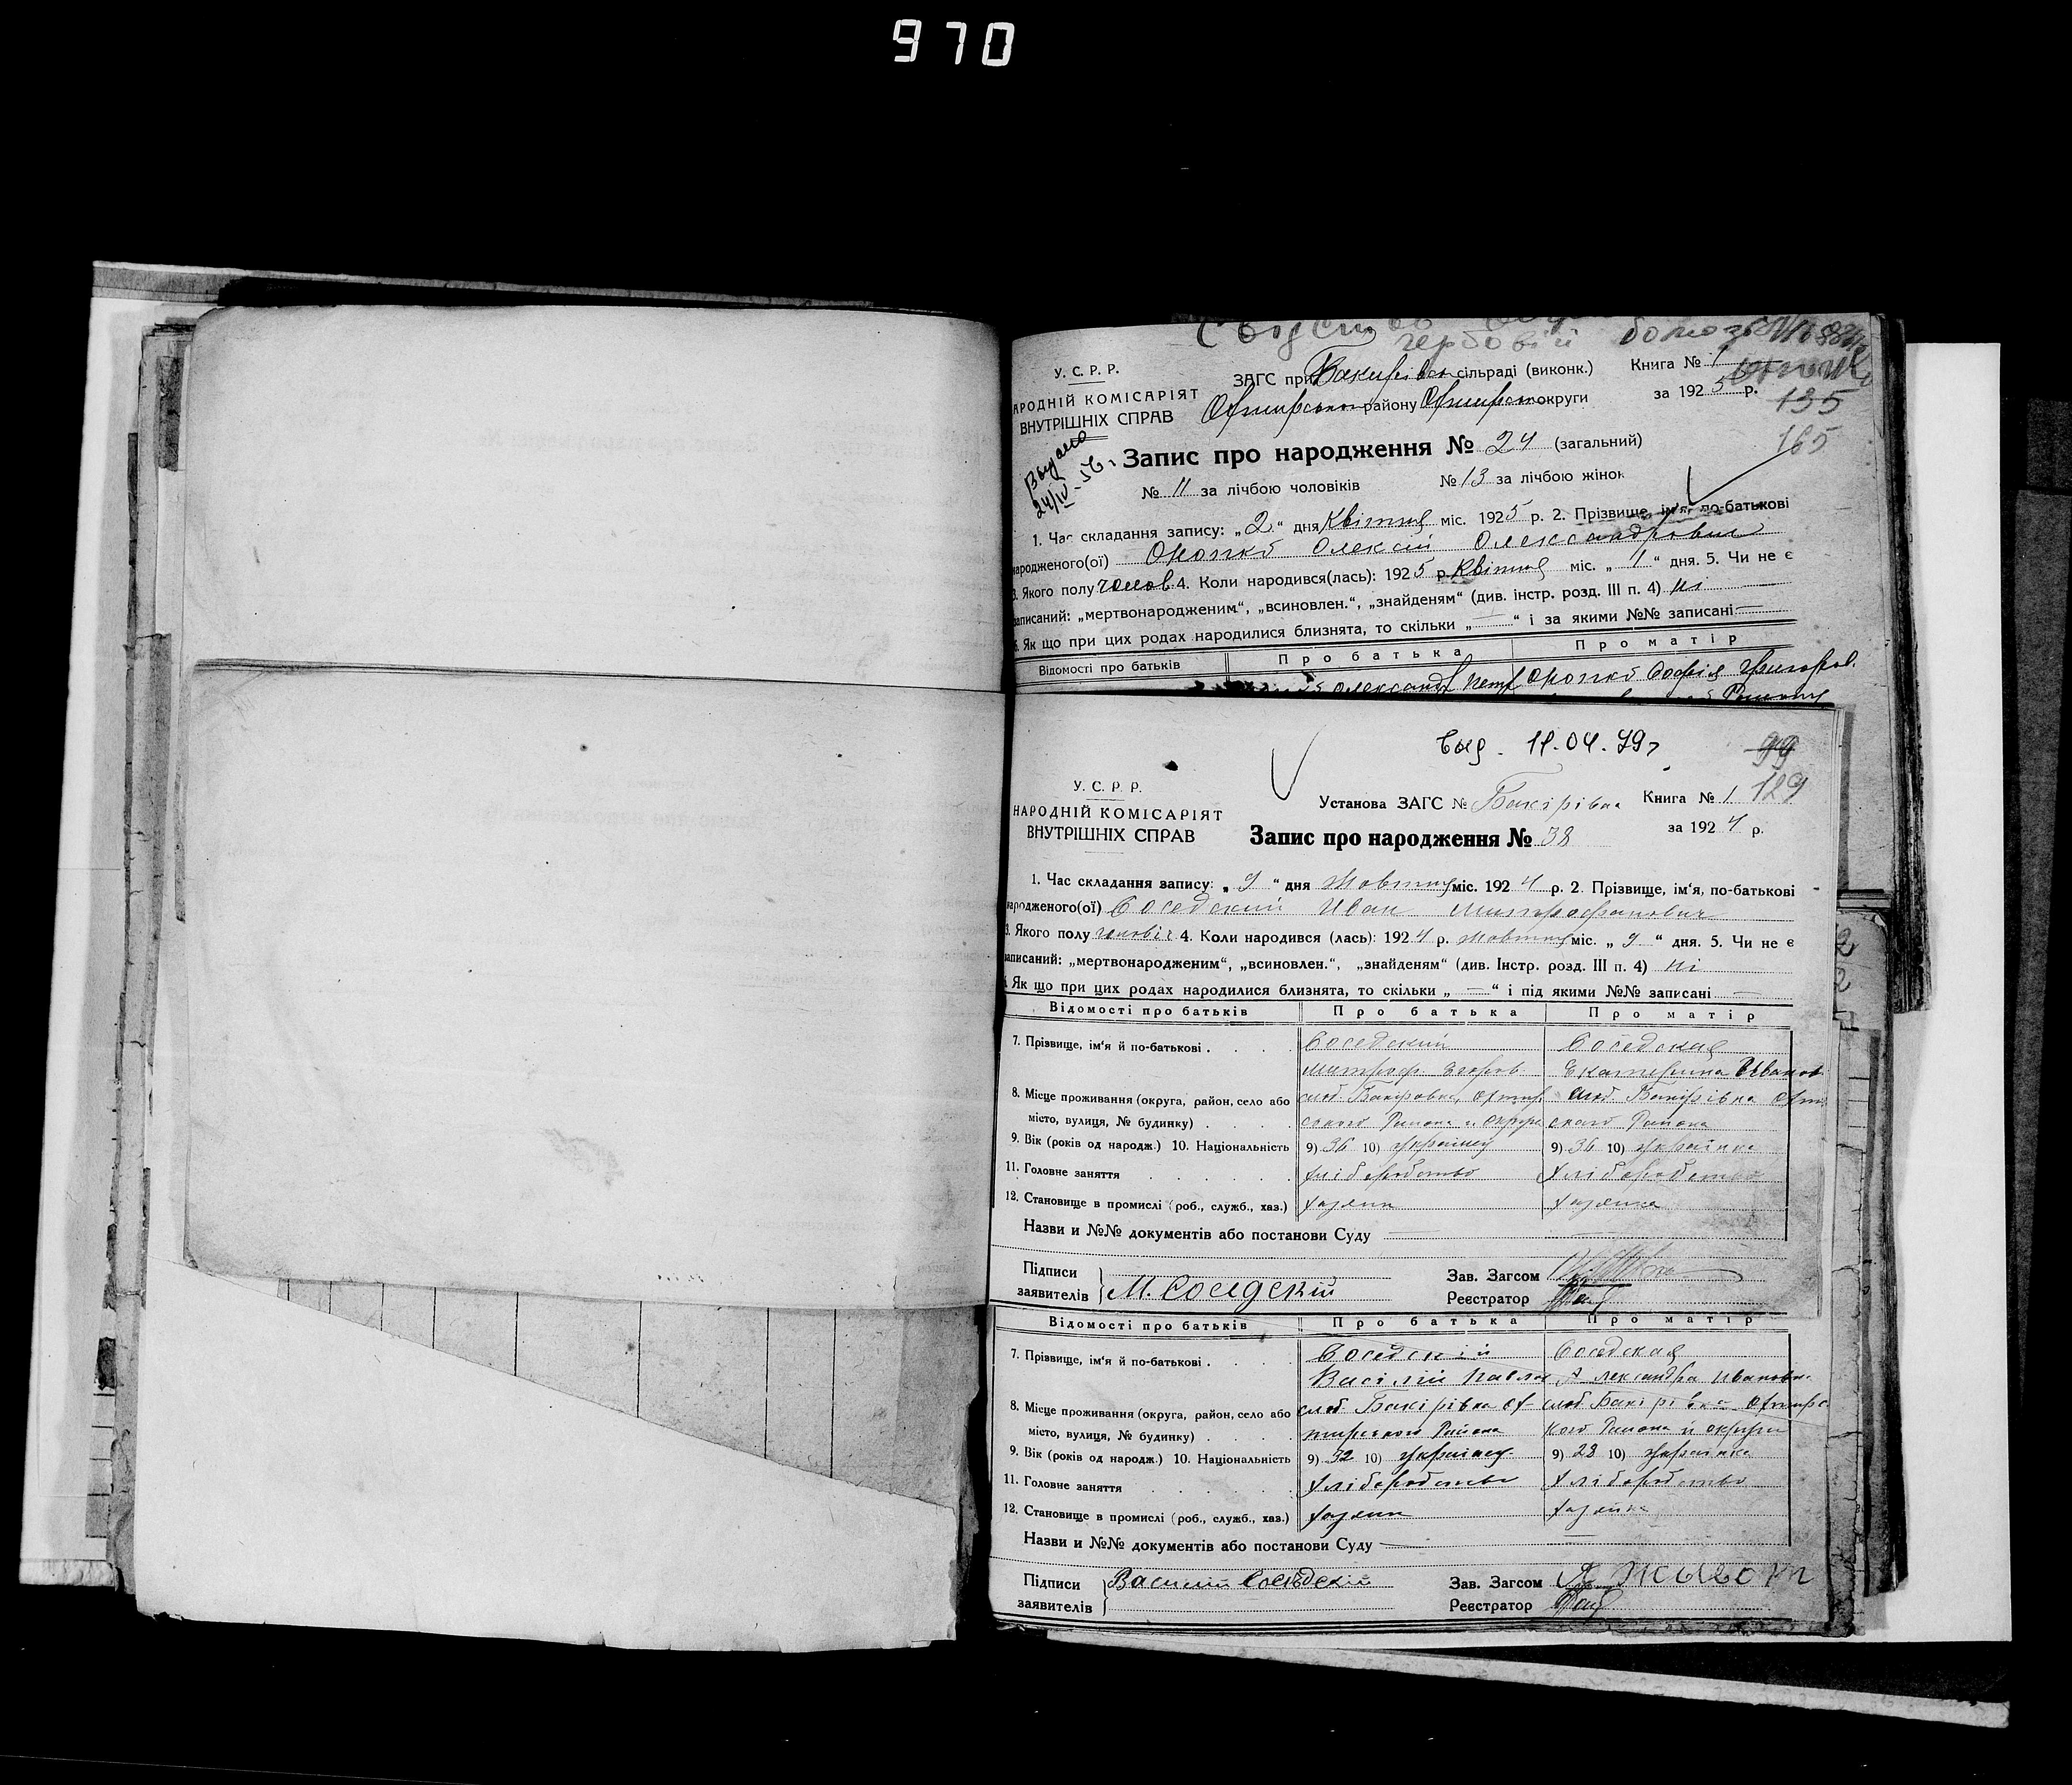 970
У. С. Р. Р.
АРОДНІЙ КОМІСАРІЯТ
ВНУТРІШНІХ СПРАВ
ЗАГС при Бакирівсь сільраді (виконк.)
Книга № 1
району округи
за 192 5 р.
135
165
24/IV-56
Запис про народження № 24 (загальний)
№ 11 за лічбою чоловіків № 13 за лічбою жінок
1. Час складання запису: „2“ дня Квітня міс. 1925 р. 2. Прізвище, ім'я, по-батькові
народженого(ої) Олексій Олександрович
3. Якого полу чолов. 4. Коли народився(лась): 1925 р. Квітня міс. „1“ дня. 5. Чи не є
записаний: „мертвонародженим“, „всиновлен.“, „знайденям“ (див. інстр. розд. III п. 4) ні
6. Як що при цих родах народилися близнята, то скільки „—“ і за якими №№ записані —
Відомості про батьків Про батька Про матір
Олександр Петр Софія Григоров.
Выд. 11.04.79 г
99
129
У. С. Р. Р.
НАРОДНІЙ КОМІСАРІЯТ
ВНУТРІШНІХ СПРАВ
Установа ЗАГС № Бакірівка Книга № 1
за 192 4 р.
Запис про народження № 38
1. Час складання запису: „9“ дня Жовтня міс. 1924 р. 2. Прізвище, ім'я, по-батькові
народженого(ої) Соседский Иван Митрофанович
3. Якого полу чоловіч 4. Коли народився (лась): 1924 р. Жовтня міс. „9“ дня. 5. Чи не є
записаний: „мертвонародженим“, „всиновлен.“, „знайденям“ (див. Інстр. розд. III п. 4) ні
Як що при цих родах народилися близнята, то скільки „—“ і під якими №№ записані —
Відомості про батьків Про батька Про матір
7. Прізвище, ім'я й по-батькові . . . Соседский Соседская
Митроф. Егоров Екатерина Иванов
8. Місце проживання (округа, район, село або слоб. Бакіровка, Охтыр слоб. Бакірівка Охт
місто, вулиця, № будинку) . . . . ского Района и округи ского Района
9. Вік (років од народж.) 10. Національність 9) 36 10) Україиец 9) 36 10) Українка
11. Головне заняття . . . . . Хліборобство Хліборобство
12. Становище в промислі (роб., служб., хаз.) Хазяин Хазяйка
Назви и №№ документів або постанови Суду —
Підписи
заявителів М. Соседскій
Зав. Загсом
Реєстратор
Відомості про батьків Про батька Про матір
7. Прізвище, ім'я й по-батькові . . . Соседскій Соседская
Васілій Павлов Александра Иванови.
8. Місце проживання (округа, район, село або слоб. Бакірівка Ох- слоб. Бакірівка Охтырс
місто, вулиця, № будинку) . . . . тирского Района кого Района и округи
9. Вік (років од народж.) 10. Національність 9) 32 10) Українец 9) 28 10) Українка
11. Головне заняття . . . . . Хліборобство Хліборобство
12. Становище в промислі (роб., служб., хаз.) Хазяин Хазяйка
Назви и №№ документів або постанови Суду —
Підписи
заявителів Василий Соседскій
Зав. Загсом
Реєстратор